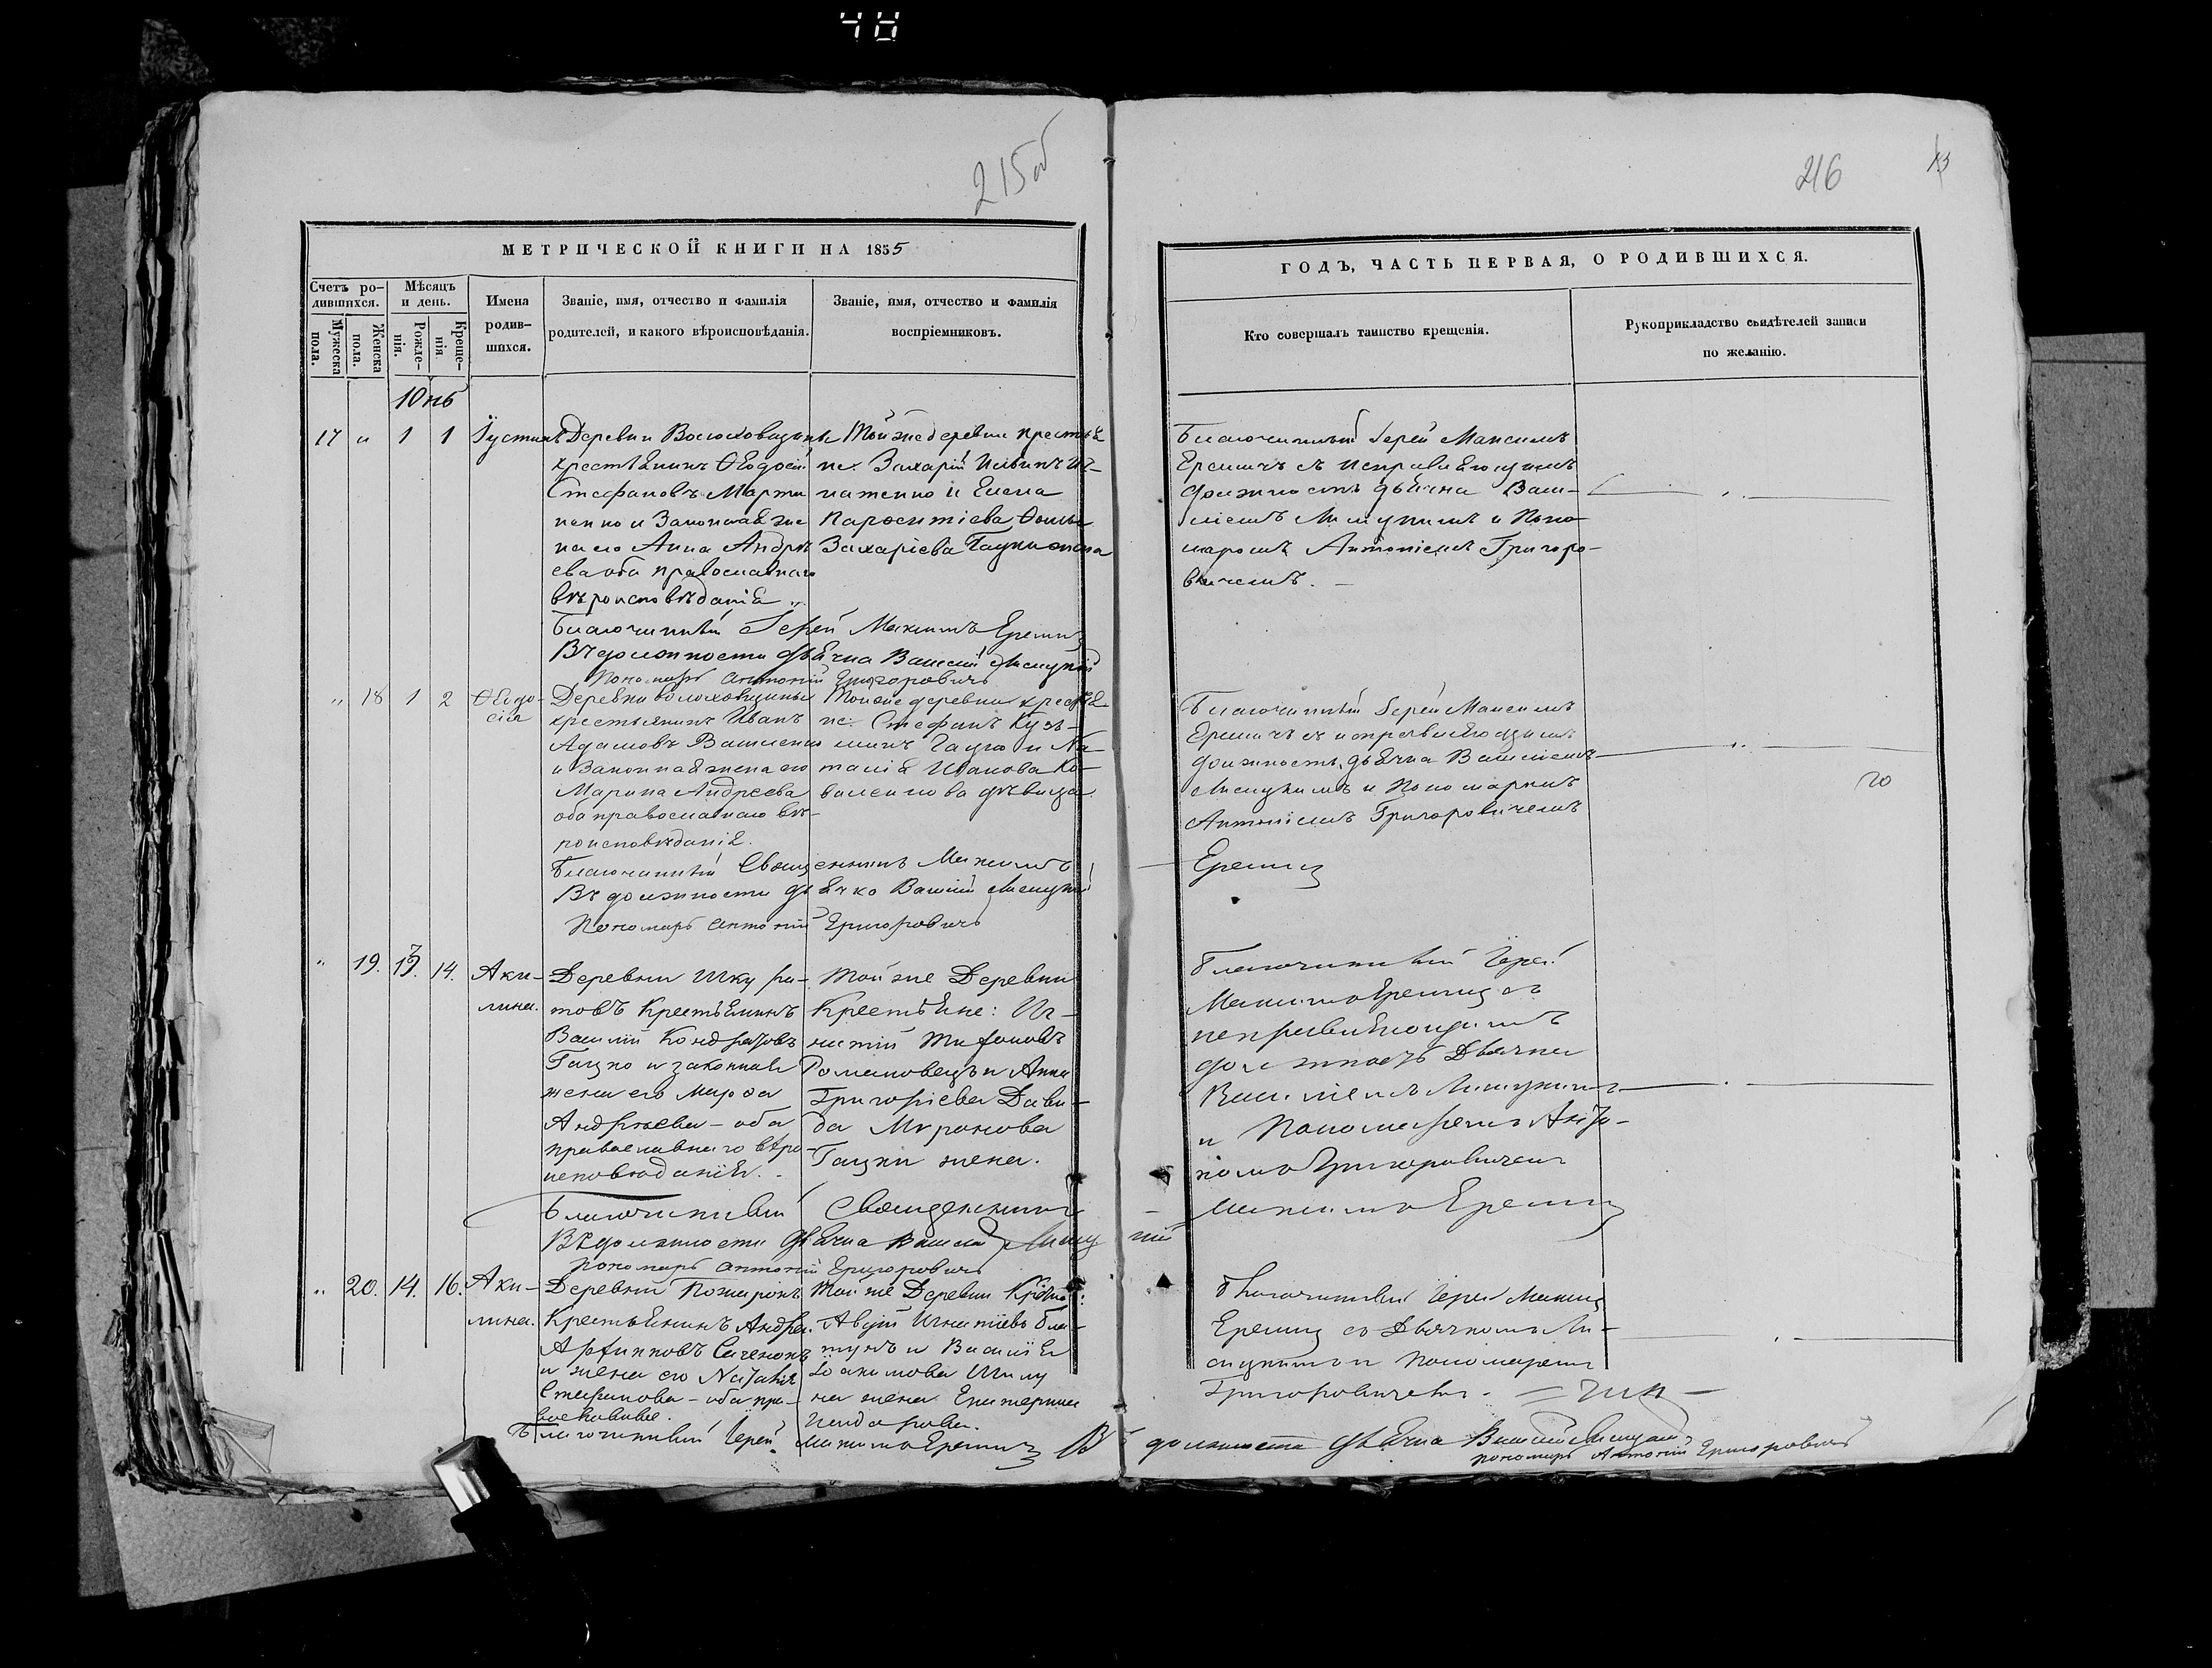 48
215об
216
МЕТРИЧЕСКОЙ КНИГИ НА 1855
ГОДЪ, ЧАСТЬ ПЕРВАЯ, О РОДИВШИХСЯ.
Счетъ ро-
дившихся.
Мужеска
пола.
Женска
пола.
Мѣсяцъ
и день.
Рожде-
нія.
Креще-
нія.
Имена
родив-
шихся.
Званіе, имя, отчество и фамилія
родителей, и какого вѣроисповѣданія.
Званіе, имя, отчество и фамилія
воспріемниковъ.
Кто совершалъ таинство крещенія.
Рукоприкладство свидѣтелей записи
по желанію.
Юнь
17 " 1 1 Іустинъ
Деревни Волосковщины
крестьянинъ Ѳеодосій
Стефановъ Марти
ненко и Законная же
на его Анна Андре
ева оба православнаго
вѣроисповѣданія
Той же деревни крестья
не: Захарій Ильинъ Иг-
натенко и Елена
Ѳомы
Захаріева Гацки жена
Благочинный Іерей Максимъ
Еремичъ съ исправляющимъ
должность дьячка Васи-
ліемъ Лисицкимъ и Поно
маромъ Антоніемъ Григоро-
вичемъ.
Благочинный Іерей Максимъ Еремич
Въ должности дьячка Василій Лисицкій
Пономарь Антоній Григоровичъ
" 18 1 2 Ѳеодо-
сія
Деревни Волосковщины
крестьянинъ Иванъ
Адамовъ Василенко
и Законная жена его
Марина Андреева
оба православнаго вѣ-
роисповѣданія.
Той же деревни крестья
не: Стефанъ Кузь-
минъ Гацко и На-
талія Иванова Ко-
дѣвица
Благочинный Іерей Максимъ
Еремичъ съ исправляющимъ
должность дьячка Василіемъ
Лисицкимъ и Пономаремъ
Антоніемъ Григоровичемъ
20
Благочинный Священникъ Максимъ Еремич
Въ должности дьячка Василій Лисицкій
Пономарь Антоній Григоровичъ
" 19. 13. 14. Аки-
лина.
Деревни Шкура-
товъ Крестьянинъ
Василій Кондратовъ
Гацко и законная
жена его Марѳа
Андреева - оба
православнаго вѣро
исповѣданія.
Той же Деревни
Крестьяне: Иг-
натій
Романовецъ и Анна
Григоріева Дави-
да Миронова
Гацки жена.
Благочинный Іерей
Максимъ Еремич съ
исправляющимъ
должность Дьячка
Василіемъ Лисицкимъ
и Пономаремъ Анто-
ніемъ Григоровичемъ
Благочинный Священникъ Максимъ Еремич
Въ должности дьячка Василій Лисиц кій
Пономарь Антоній Григоровичъ
" 20. 14. 16. Аки-
лина.
Деревни
Крестьянинъ Андрей
и жена его Наталія
Стефанова - оба пра-
вославные.
Той же Деревни
и Василія
на жена Екатерина
Благочинный Іерей Максим
Еремич съ Дьячкомъ Ли-
сицкимъ и Пономаремъ
Григоровичемъ.
Благочинный Іерей Максимъ Еремич В должности дьячка Василій Лисицкій
пономарь Антоній Григоровичъ